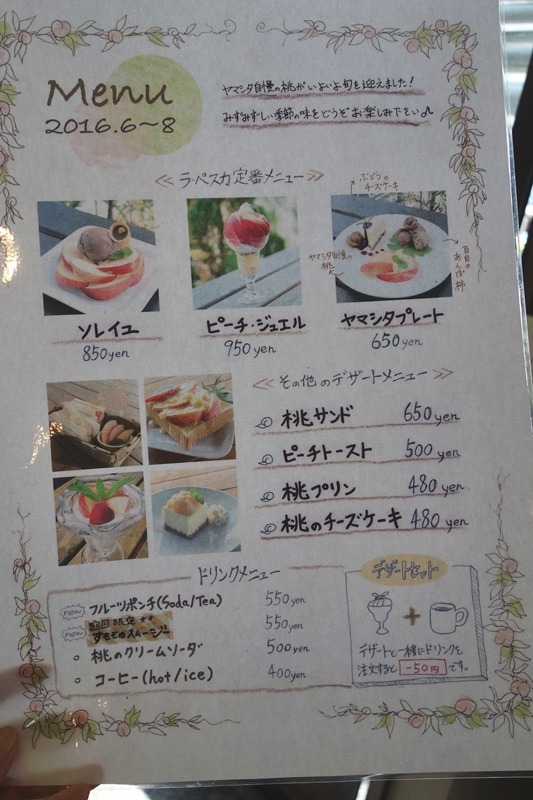 Menu
2016.6～8
ヤマシタ自慢の桃がいよいよ旬を迎えました!
みずみずしい季節の味をどうぞお楽しみ下さい♪
ラ・ペスカ定番メニュー
ぶどうの
チーズケーキ
ヤマシタ自慢の
桃
百目の
あんぽ柿
ソレイユ
850yen
ピーチ・ジュエル
950yen
ヤマシタプレート
650yen
その他のデザートメニュー
桃サンド 650yen
ピーチトースト 500yen
桃プリン 480yen
桃のチーズケーキ 480yen
ドリンクメニュー
new フルーツポンチ(Soda/Tea) 550yen
限定
new すもものスムージー 550yen
桃のクリームソーダ 500yen
コーヒー(hot/ice) 400yen
デザートセット
+
デザートと一緒にドリンクを
注文すると -50円 です。